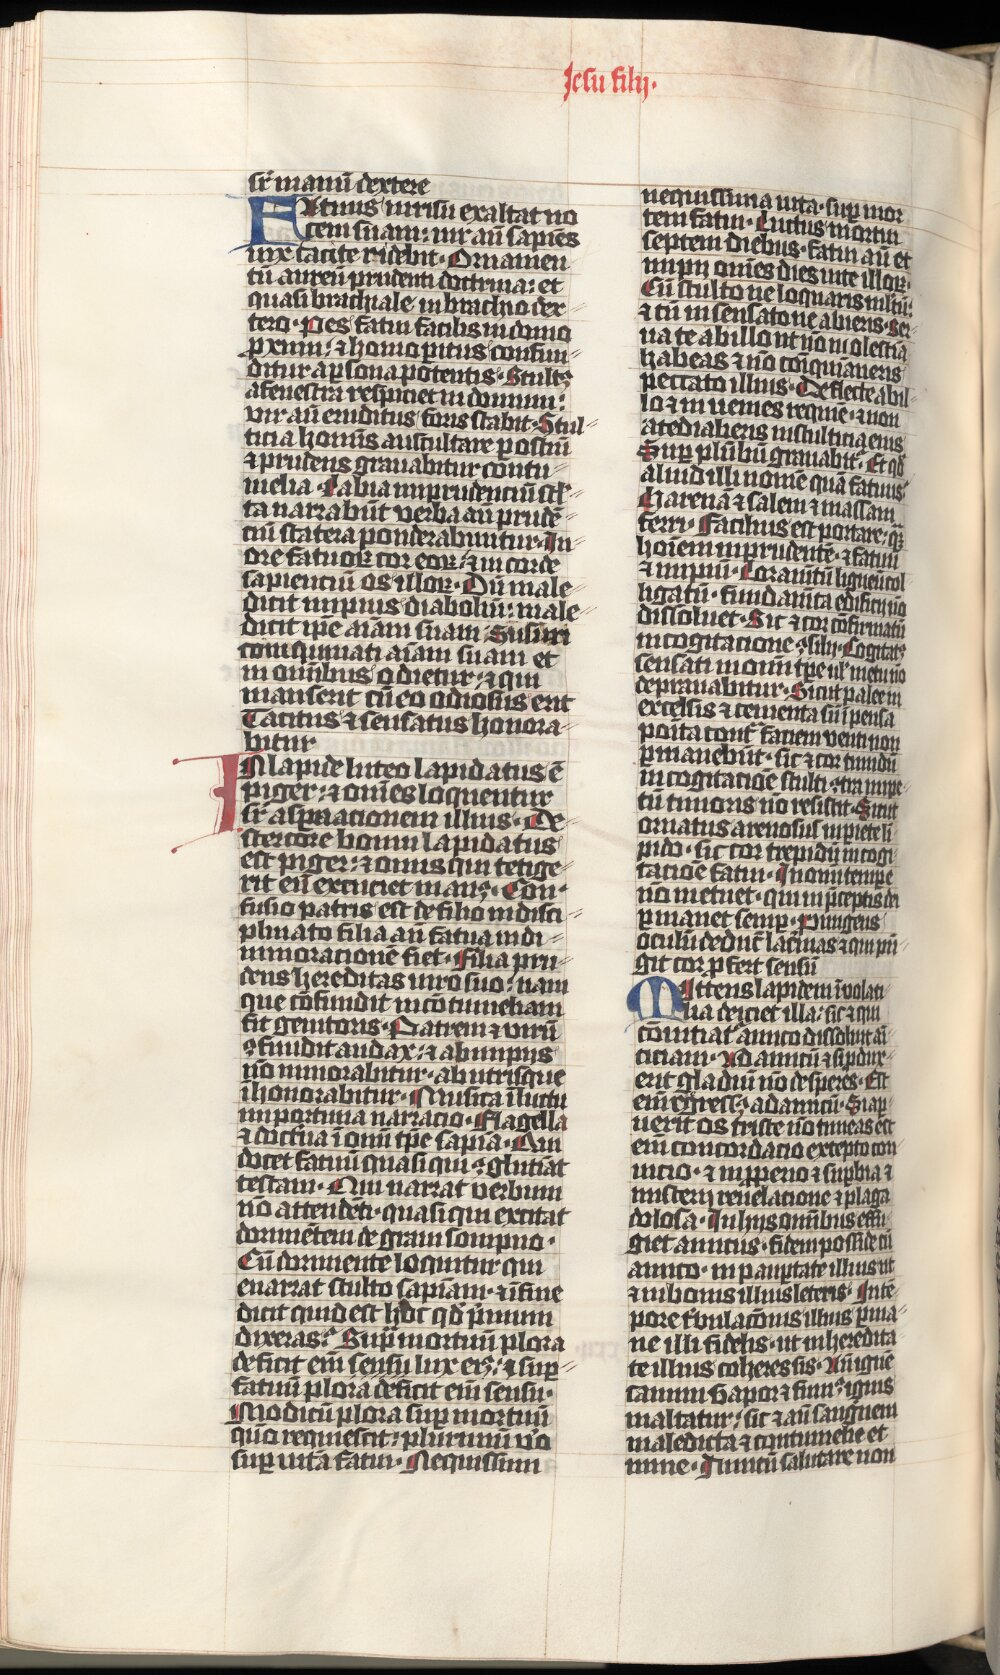 Jesu filij·
sr̄ manū dextere
FAtuus in risu exaltat uo
cem suam: uir aū sapiēs
uix tacite ridebit· Ornamen
tū aureū prudenti doctrina: et
quasi brachiale in brachio dex
tero· Pes fatui facilis in domū
p̄ximi: ⁊ homo p̄itus confun
ditur a p̄sona potentis· Stultꝰ
a fenestra respiciet in domum:
vir aū eruditus foris stabit· Stul
ticia hominis auscultare p ostiū
⁊ prudens grauabitur contu
melia· Labia imprudenciū stl
ta narrabūt verba aū prudē
ciū statera ponderabuntur· In
ore fatuoꝝ cor eoꝝ: ⁊ in corde
sapienciū os illoꝝ· Dū male
dicit impius diabolū: male
dicit ip̄e aīam suam Susurr
coinquinati aīam suam et
in omnibus odietur: ⁊ qui
manserit cū eo odiosus erit
Tacitus ⁊ sensatus honora
bitur
IN lapide luteo lapidatus ē
piger: ⁊ omēs loquentur
sr̄ asp̄nacionem illius· De
stercore boum lapidatus
est piger: ⁊ omnis qui tetige
rit eū excuciet manꝰ· Con
fusio patris est de filio indisci
plinato filia aū fatua in di
minoracionē fiet· Filia pru
dens hereditas uiro suo: nam
que cōfundit in cōtumeliam
fit genitoris· Patrem ⁊ virū
ꝯfundit audax: ⁊ ab impijs
nō minorabitur· ab utrisque
īhonorabitur· Musica ī luctu
importuna narracio· Flagella
⁊ doctīna ī omī tp̄e sapīa· Qui
docet fatuū quasi qui ꝯglutiāt
testam· Qui narrat verbum
nō attendēti· quasi qui excitat
dormiētem de graui sompno·
Cū dormiente loquitur qui
enarrat stulto sapīam· ⁊ ī fine
dicit quid est hoc qd̄ p̄mum
dixeras? Supͣ mortuū plora
deficit eīm sensu lux eiꝰ: ⁊ sup̄
fatuū plora deficit eīm sensu·
Modicū plora sup̄ mortuū
quo requiescit: plurimū v̄o
sup̄ uitā fatui· Nequissimi
nequissima uita· sup̄ mor
tem fatui· Luctus mortui
septem diebus· fatui aū et
impij omēs dies uite illoꝝ·
Cū stulto ne loquaris multū:
⁊ cū insensato ne abieris· Ser
ua te ab illo ut nō molestiā
habeas ⁊ nō coīquiaueris
peccato illius· Deflecte ab il
lo ⁊ inuenies requiē· ⁊ non
atediaberis in stulticia eius
Sup̄ plūbū grauabitͬ· Et qd̄
aliud illi nomē quā fatuus?
Harenā ⁊ salem ⁊ massam
ferri· Facilius est portare: qͣꝫ
hoīem imprudentē· ⁊ fatuū
⁊ impiū· Loramētū ligneū col
ligatū· fundamēta edificij nō
dissoluet· Sic ⁊ cor cōfirmatū
in cogitacione ꝯsilij· Cogitatꝰ
sensati in omī tp̄e ul̓ metu nō
deprauabitur· Sicut palee in
excelsis ⁊ cementa sū īpensa
posita contͣ faciem venti non
p̄manebūt· sic ⁊ cor timidū
in cogitacioē stulti ꝯtra impe
tū timoris nō resistit· Sicut
ornatus arenosus in pariete li
pido· sic cor trepidū in cogi
tacioē fatui· In omī tempē
nō metuet· qui in p̄ceptis dei
p̄manet semp̄· Pungens
oculū deducit lac̄mas ⁊ qui pū
git cor p̄fert sensū
MIttens lapidem ī volati
lia deiciet illa: sic ⁊ qui
cōuitiatͬ amico dissoluit aī
ciciam· Ad amicū ⁊ si p̄dux
erit gladiū nō desperes· Est
eīm regressꝰ· ad amicū· Si ap
uerit os triste nō timeas est
eīm concordacio excepto con
uicio· ⁊ imp̄perio ⁊ sup̄bia ⁊
misterij reuelacione ⁊ plaga
dolosa· In hijs omībus effu
giet amicus· fidem posside cū
amico· in paup̄tate illius ut
⁊ in bonis illius leteris· In tē
pore t̄bulacōnis illius p̄ma
ne illi fidelis· ut in heredita
te illius coheres sis· An̄ ignē
camini vapor ⁊ fumꝰ ignis
inaltatur: sic ⁊ an̄ sanguīem
maledicta ⁊ contumelie et
mine· Amicū salutare non